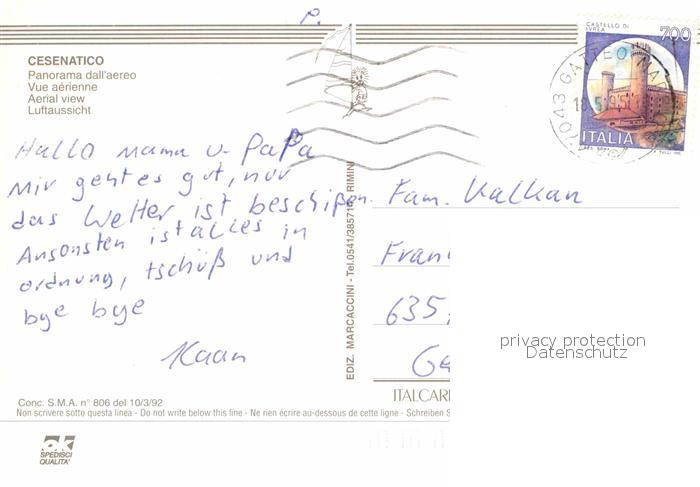 P.
CESENATICO
Panorama dall'aereo
Vue aérienne
Aerial view
Luftaussicht
CASTELLO DI
IVREA
700
ITALIA
43 GATTEO MA
Hallo Mama u. PaPa
Mir geht es gut, nur
das Wetter ist beschißen.
Ansonsten ist alles in
ordnung, tschüß und
bye bye
Kaan
EDIZ. MARCACCINI - Tel. 0541/385710 RIMINI
Fam. Kalkan
Fran
635
Ga
privacy protection
Datenschutz
ITALCAR
Conc. S.M.A. n° 806 del 10/3/92
Non scrivere sotto questa linea - Do not write below this line - Ne rien écrire au-dessous de cette ligne - Schreiben S
ok
SPEDISCI
QUALITA'